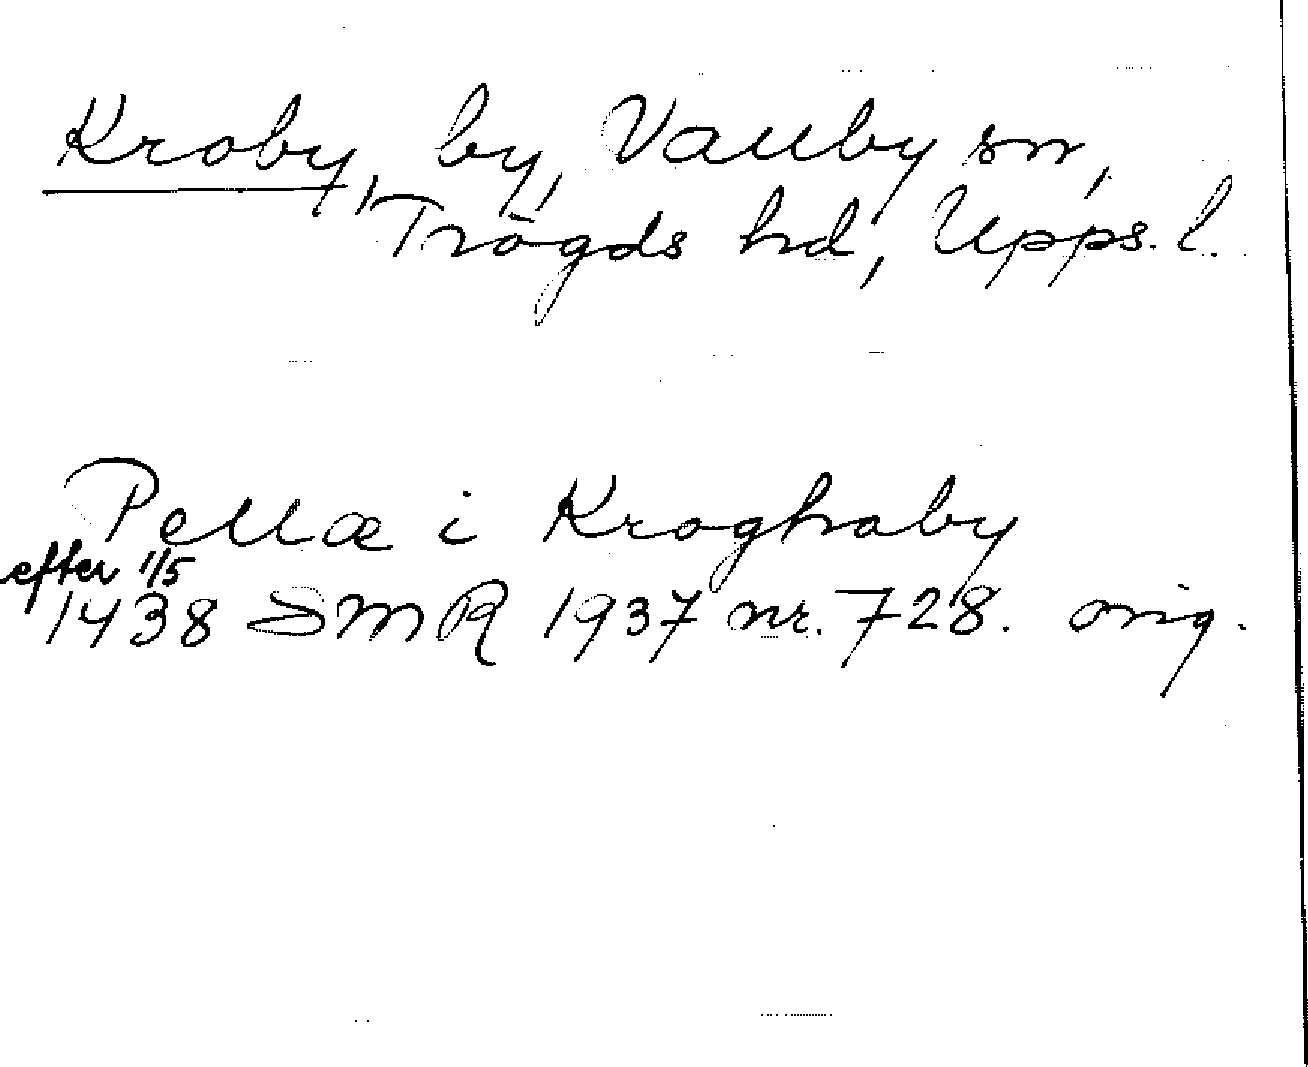 Kroby, by, Vallby sn,
Trögds hd, Upps. l.
Pellæ i Kroghaby
efter 1/5
1438 SMR 1937 nr. 728. orig.